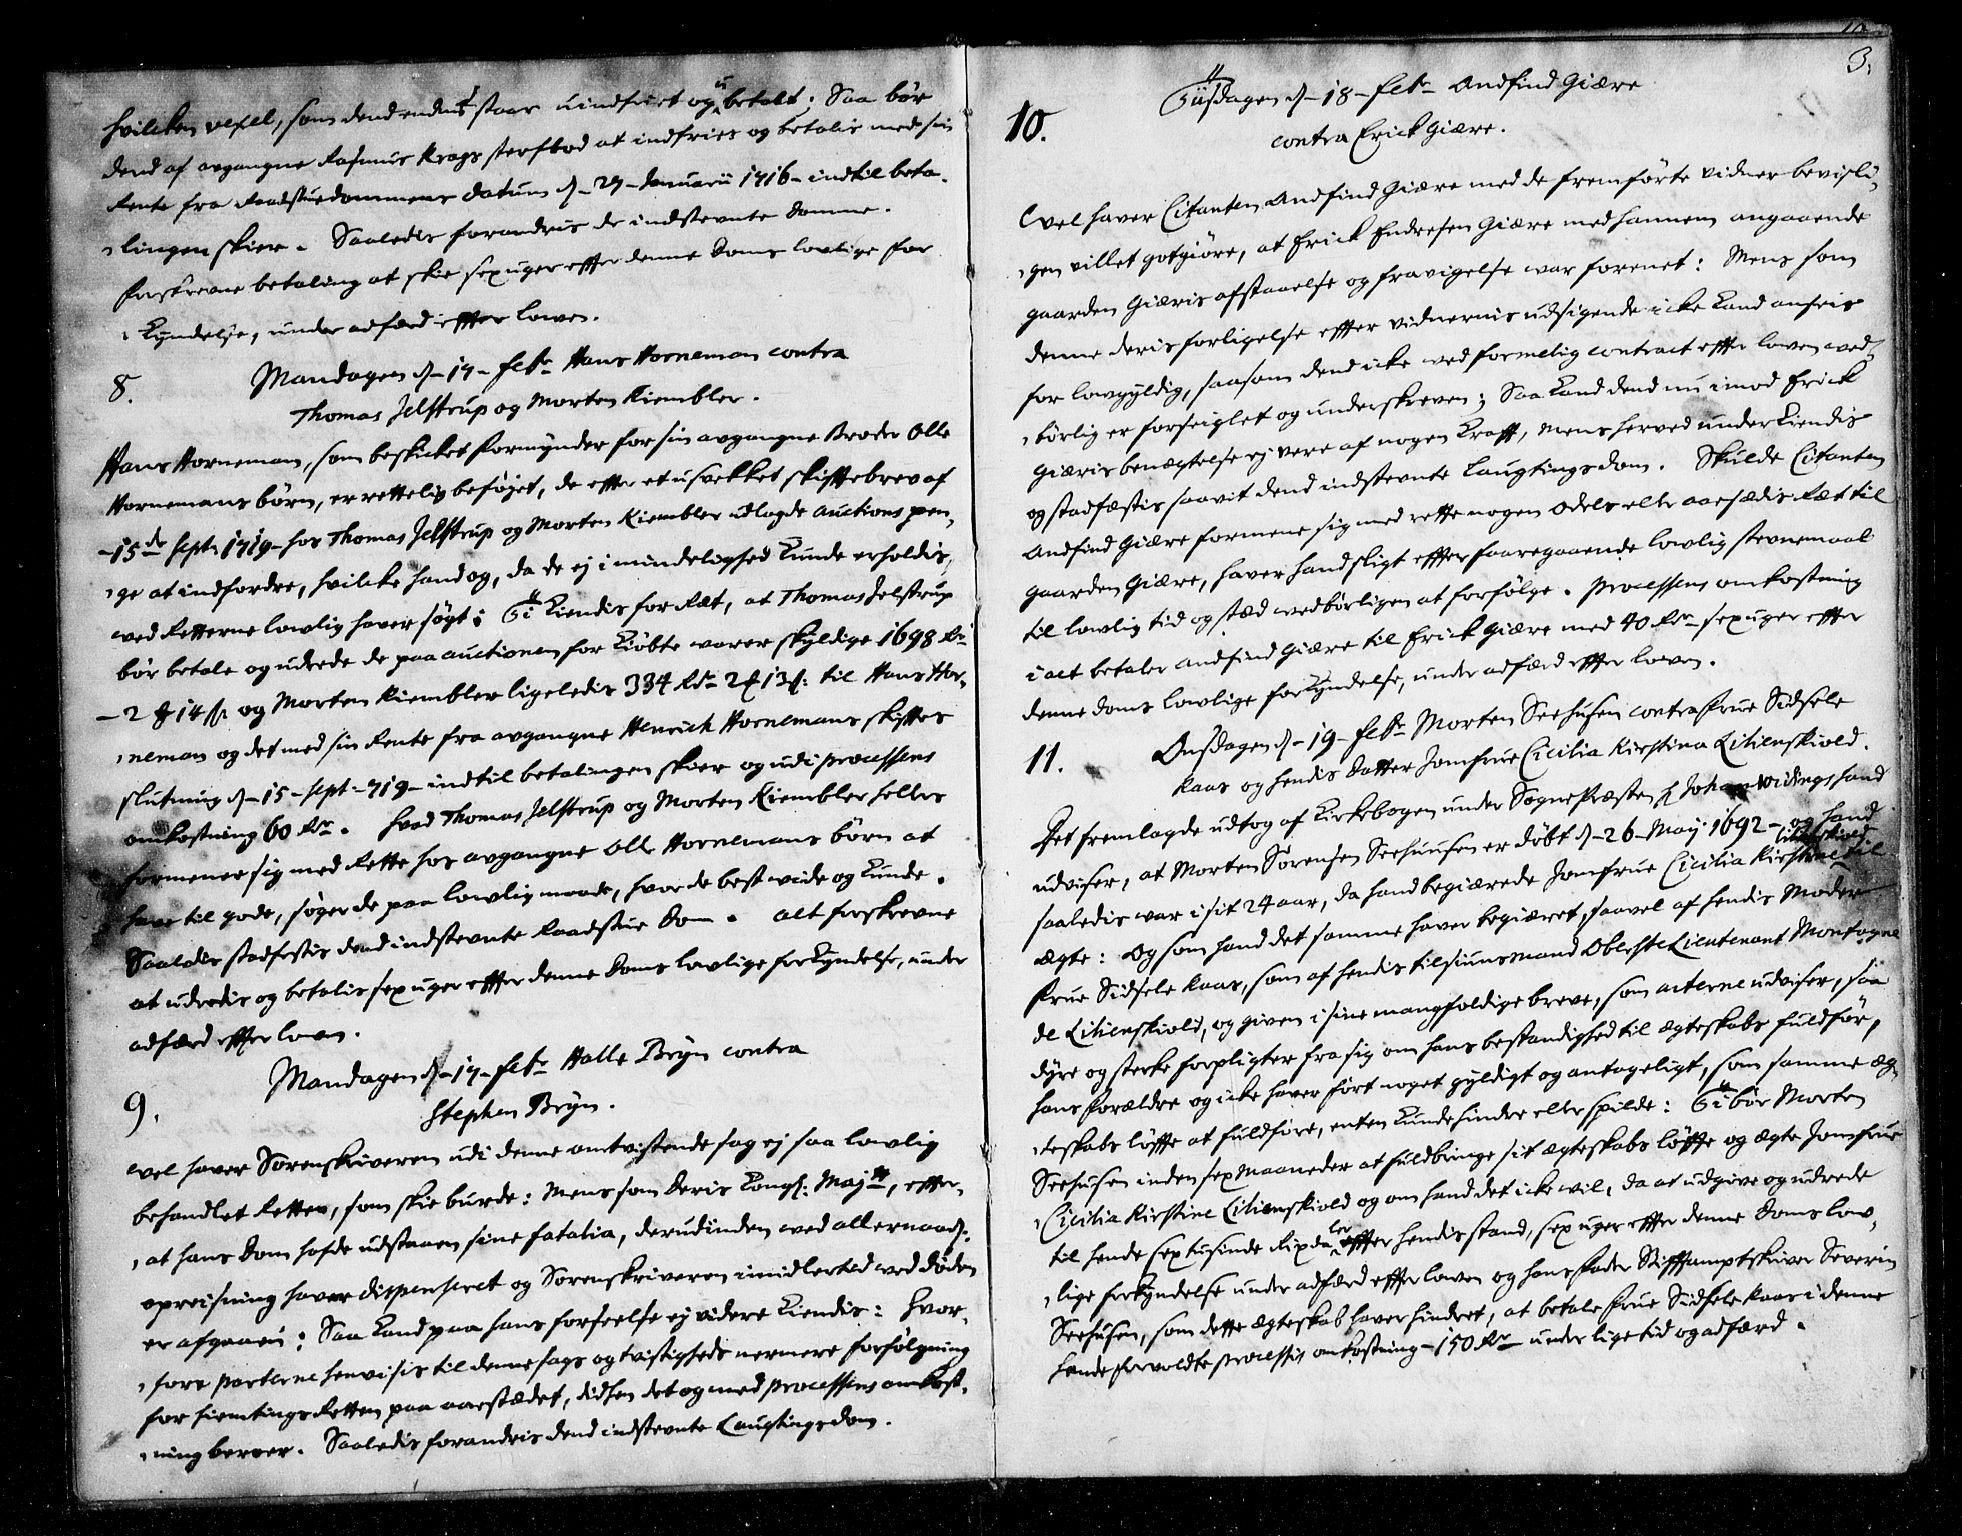 hvilcken vexel, som dend endnu staar uindfriet og u betalt; Saa bør
dend af avgangne Rasmus Krags sterfbod at indfries og betalis med sin
Rente fra Raadstuedommens datum d. 27 Januarii 1716 indtil beta-
lingen skier. Saaledis forandris de indstevnte domme.
forskrevne betaling at skie sex uger effter denne doms lovlige for
kyndelse, under adfærd effter loven.
8. Mandagen d. 17 febr Hans Horneman contra
Thomas Jelstrup og Morten Kiembler.
Hans Horneman, som beskicket formynder for sin avgangne Broder Olle
Hornemans børn, er rettelig beføjet, de effter et usvekket skifftebrev af
15de Septr 1719 hos Thomas Jelstrup og Morten Kiembler udlagde auctions pen-
ge at indfordre, hvilcke hand og, da de ej i mindelighed kunde erholdis,
ved Retterne lovlig haver søgt; Ti kiendis for Ræt, at Thomas Jelstrup
bør betale og udrede de paa auctionen for kiøbte varer skyldige 1698 Rdr
2 ℔ 14 ß og Morten Kiembler ligeledis 334 Rdr 2 ℔ 13 ß: til Hans Hor-
neman og det med sin Rente fra avgangne Henrich Hornemans skifftes
slutning d. 15 Sept: 719 indtil betalingen skier og udi processens
omkostning 60 Rdr. Hvad Thomas Jelstrup og Morten Kiembler hellers
formener sig med Rette hos avgangne Olle Hornemans børn at
have til gode, søger de paa lovlig maade, hvor de best vide og kunde.
Saaledis stadfestis dend indstevnte Raadstue dom. alt forskrevne
at udredis og betalis sex uger effter denne doms lovlige forkyndelse, under
adfærd effter loven.
9. Mandagen d. 17 febr Halle Bryn contra
Stephen Bryn.
Vel haver Sorenskriveren udi denne omtvistende sag ej saa lovlig
behandlet Retten, som skie burde: Mens som deris Kongl: Majtt, effter-
at hans dom hafde udstaaen sine fatalia, derudinden ved allernaads:
opreisning haver dispenseret og Sorenskriveren imidlertid ved døden
er afgaaen; Saa kand paa hans forseelse ej videre kiendis: Hvor-
fore parterne henvisis til denne sags og tvistigheds nermere forfølgning
for hiemtings Retten paa aarstædet, didhen det og med processens omkost-
ning beroer. Saaledis forandris dend indstevnte Laugtings dom.
3.
10. Tiisdagen d. 18 febr Andfind Giære
contra Erick Giære.
Vel haver Citanten Andfind Giære med de fremførte vidner bevisli-
gen villet gotgiøre, at Erick Endresen Giære med hannem angaaende
gaarden Giæris afstaaelse og fravigelse var forenet: Mens som
denne deris forligelse effter vidnernis udsigende icke kand ansees
for lovgyldig, saasom dend icke ved formelig contract effter loven ved-
børlig er forseiglet og underskreven; Saa kand dend nu imod Erick
Giæris benægtelse ej vere af nogen krafft, mens herved underkiendis
og stadfæstis saavit dend indstevnte Laugtings dom. Skulde Citanten
Andfind Giære formene sig med rette nogen odels eller aasædis Ræt til
gaarden Giære, haver hand sligt effter foregaaende lovlig stevnemaal
til lovlig tid og stæd vedbørligen at forfølge. Processens omkostning
i alt betaler Andfind Giære til Erick Giære med 40 Rdr sex uger effter
denne doms lovlige forkyndelse, under adfærd effter loven.
11. Onsdagen d. 19 febr Morten Seehusen contra frue Sidsele
Kaas og hendis datter Jomfrue Cicilia Kirstina Litienskiold.
Det fremlagde udtog af kirkebogen under Sognepræsten hr Johan Widings haand
udviser, at Morten Sørensen Seehuusen er døbt d. 26 Maij 1692 og hand
saaledis var i sit 24 aar, da hand begiærede Jomfrue Cicilia Kirstine Litienskiold til
ægte: Og som hand det samme haver begiæret, saavel af hendis Moder
frue Sidsele Kaas, som af hendis tilsiunsmand Oberste Lieutenant Montagne
de Litienskiold, og given i sine mangfoldige breve, som acterne udviser, saa
dyre og sterke forpligter fra sig om hans bestandighed til ægteskabs fuldfør,
hans forældre og icke haver ført noget gyldigt og antageligt, som samme æg-
teskabs løffte at fuldføre, enten kunde hindre eller spilde: Ti bør Morten
Seehusen inden sex Maaneder at fuldbringe sit ægteskabs løffte og ægte Jomfrue
Cicilia Kirstine Litienskiold og om hand det icke vil, da at udgive og udrede
til hende sex tusinde Rixdaler effter hendis stand, sex uger effter denne doms lov-
lige forkyndelse under adfærd effter loven og hans fader Stifftamptskriver Severin
Seehusen, som dette ægteskab haver hindret, at betale frue Sidsele Kaas i denne
hende forvoldte processis omkostning 150 Rdr under lige tid og adfærd.